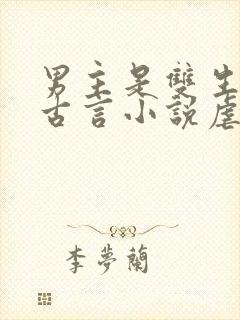 男主是雙生
古言小說虐
李夢蘭